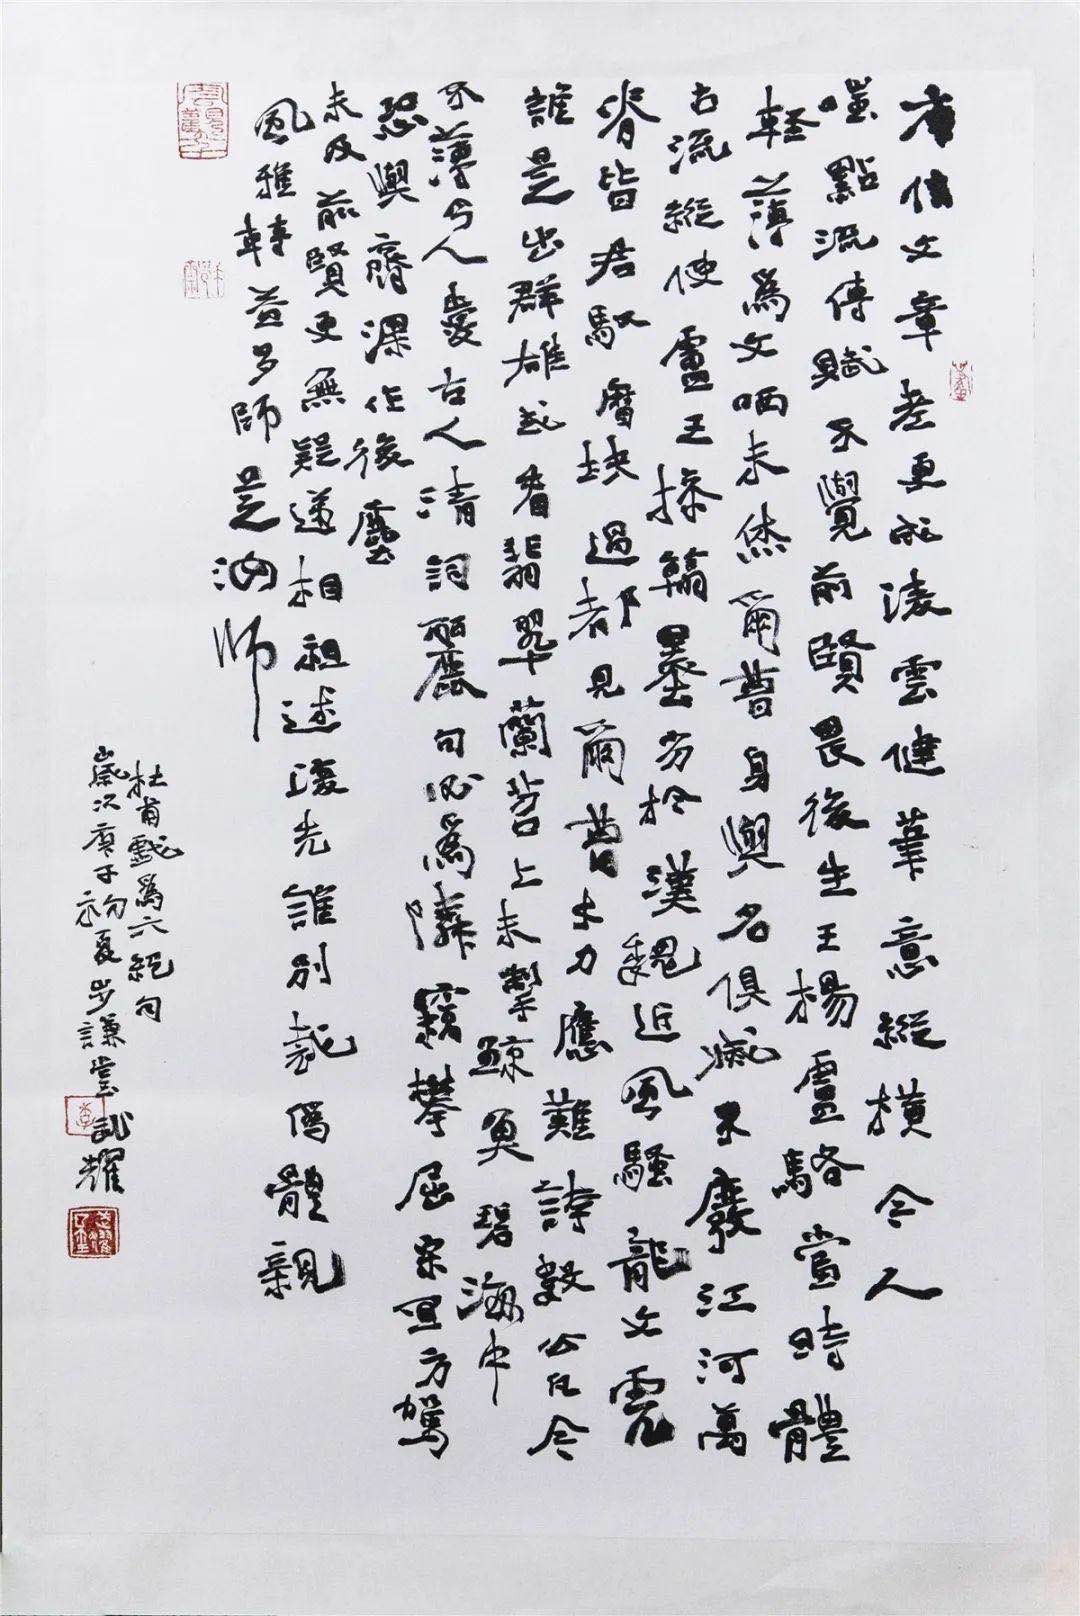 庾信文章老更成淩雲健筆意縱橫今人
嗤點流傳賦不覺前賢畏後生王楊盧駱當時體
輕薄為文哂未休爾曹身與名俱滅不廢江河萬
古流縱使盧王操翰墨劣於漢魏近風騷龍文虎
脊皆君馭曆塊過都見爾曹才力應難誇數公凡今
誰是出群雄或看翡翠蘭苕上未掣鯨魚碧海中
不薄今人愛古人清詞麗句必為隣竊攀屈宋宜方駕
恐與齊梁作後塵
未及前賢更無疑遞相祖述復先誰別裁偽體親
風雅轉益多師是汝師
杜甫戲為六絕句
歲次庚子初夏步謙堂武耀